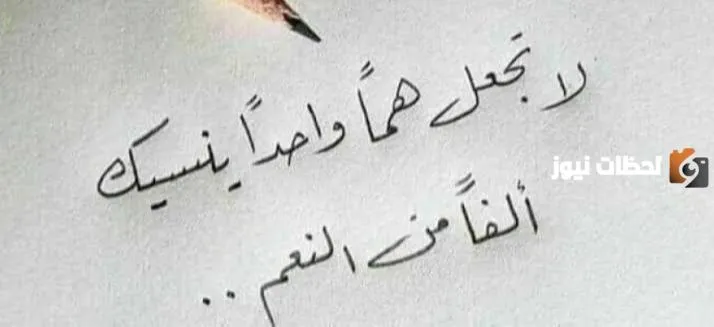 لا تجعل هماً واحداً ينسيك
لحظات نيوز
ألفاً من النعم ..